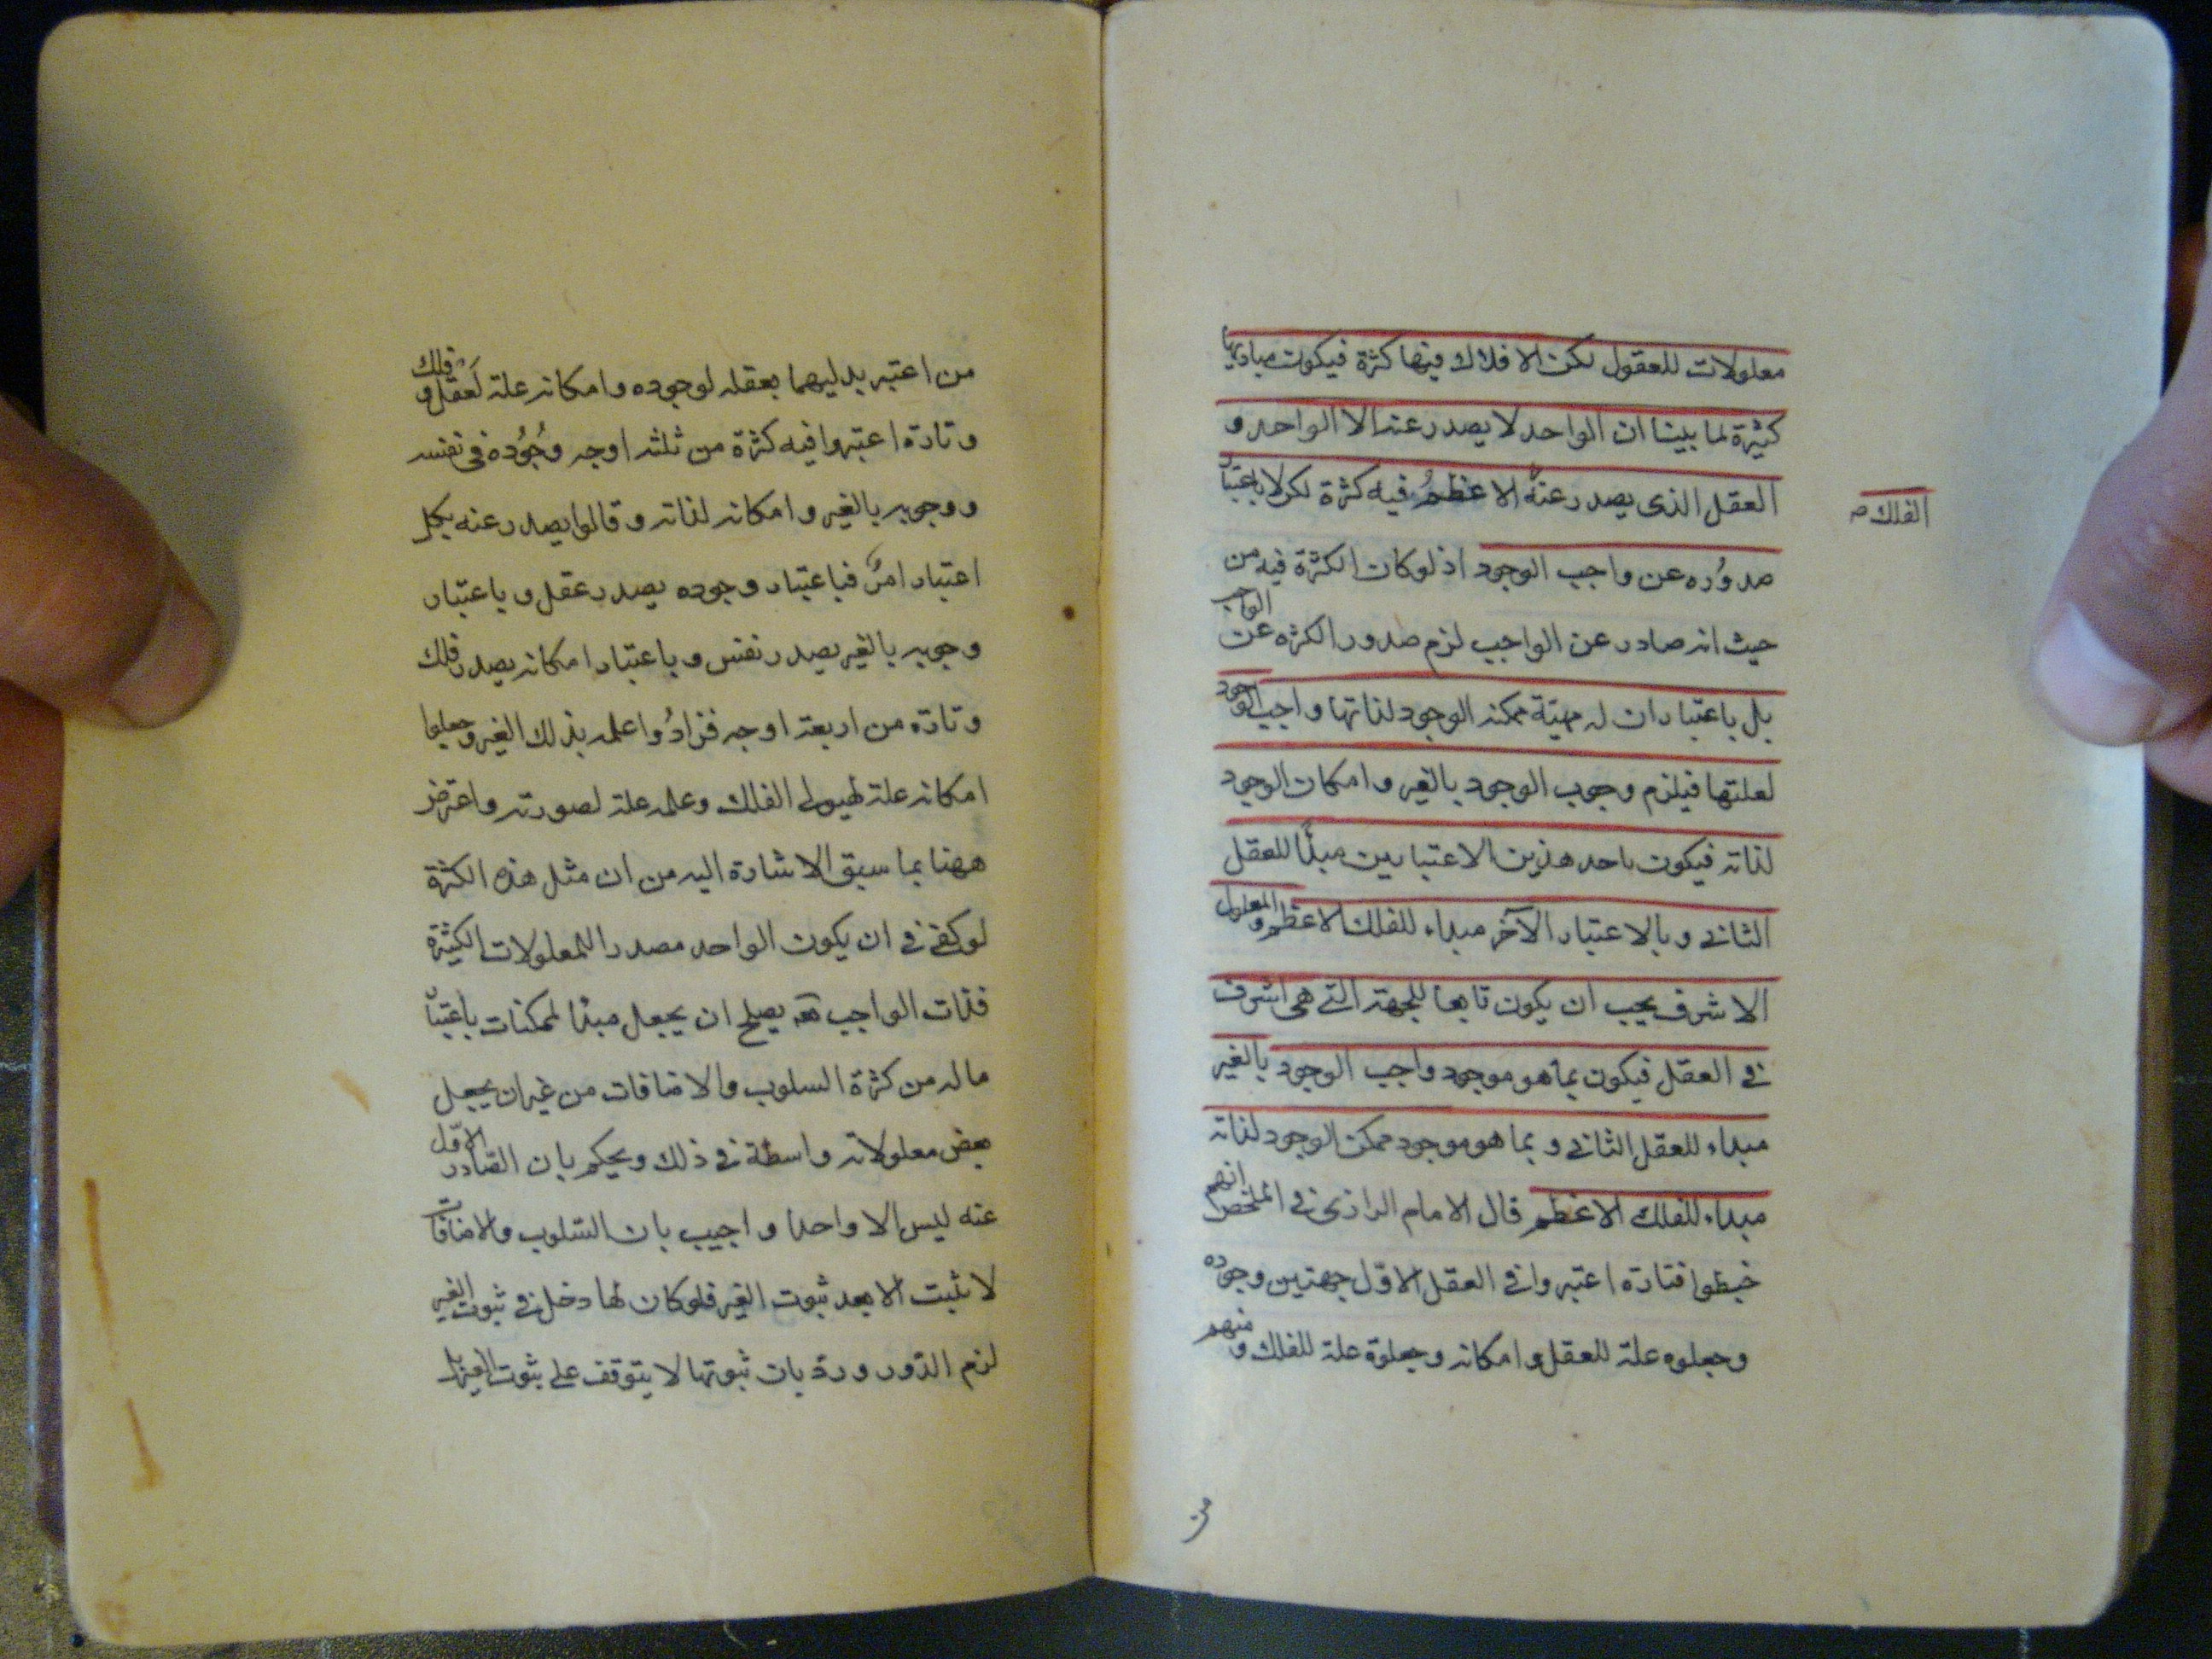 معلولات للعقول لكن الافلاك فيها كثرة فيكون مباديها
كثيرة لما بينا ان الواحد لا يصدر عنه الا الواحد و
العقل الذى يصدر عنه الاعظم فيه كثرة لكن لا باعتبار
الفلك صـ
صدوره عن واجب الوجود اذ لو كان الكثرة فيه من
حيث انه صادر عن الواجب لزم صدور الكثره عن الواجب
بل باعتبار ان له مهيّة ممكنه الوجود لذاتها و اجب الوجود
لعلتها فيلزم وجوب الوجود بالغير و امكان الوجود
لذاته فيكون باحد هذين الاعتبارين مبدأ للعقل
الثانى و بالاعتبار الآخر مبداء للفلك الاعظم و المعلول
الاشرف يجب ان يكون تابعا للجهة التى هى اشرف
فى العقل فيكون بما هو موجود واجب الوجود بالغير
مبداء للعقل الثانى و بما هو موجود ممكن الوجود لذاته
مبداء للفلك الاعظم قال الامام الرازى فى الملخص انهم
خبطوا فتارة اعتبروا فى العقل الاوّل جهتين وجوده
وجعلوه علة للعقل و امكانه وجعلوة علة للفلك و منهم
من
من اعتبر بدليهما بعقله لوجوده و امكانه علة لعقل و فلك
و تارة اعتبروا فيه كثرة من ثلثه اوجه وجوده فى نفسه
و وجوبه بالغير و امكانه لذاته و قالوا يصدر عنه بكل
اعتبار امر فباعتبار وجوده يصدر عقل و باعتبار
وجوبه بالغير يصدر نفس و باعتبار امكانه يصدر فلك
و تارة من اربعة اوجه فزادوا علمه بذلك الغير وجعلوا
امكانه علة لهيولى الفلك وعلمه علة لصورته و اعترض
ههنا بما سبق الاشارة اليه من ان مثل هذه الكثرة
لو كفى فى ان يكون الواحد مصدرا للمعلولات الكثيرة
فذات الواجب تعه يصلح ان يجعل مبدأ للممكنات باعتبار
ماله من كثرة السلوب والاضافات من غير ان يجعل
بعض معلولاته واسطة فى ذلك ويحكم بان الصّادر الاوّل
عنه ليس الا واحدا و اجيب بان السّلوب والاضافات
لا تثبت الا بعد ثبوت الغير فلو كان لها دخل فى ثبوت الغير
لزم الدّور و ردّ بان ثبوتها لا يتوقف على ثبوت الغير بل